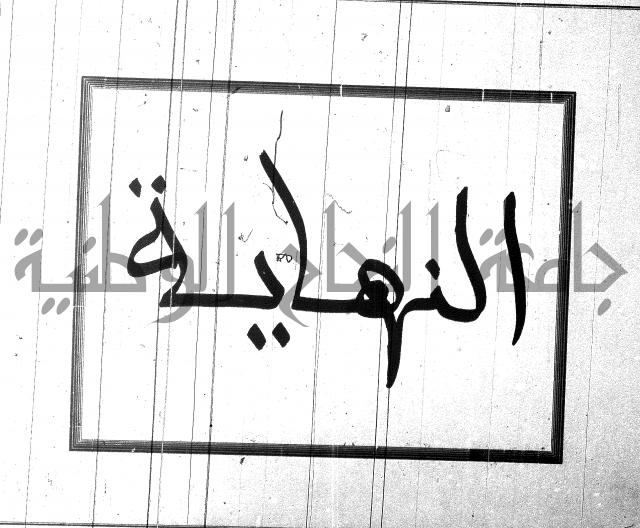 النهاية
جامعة النجاح الوطنية